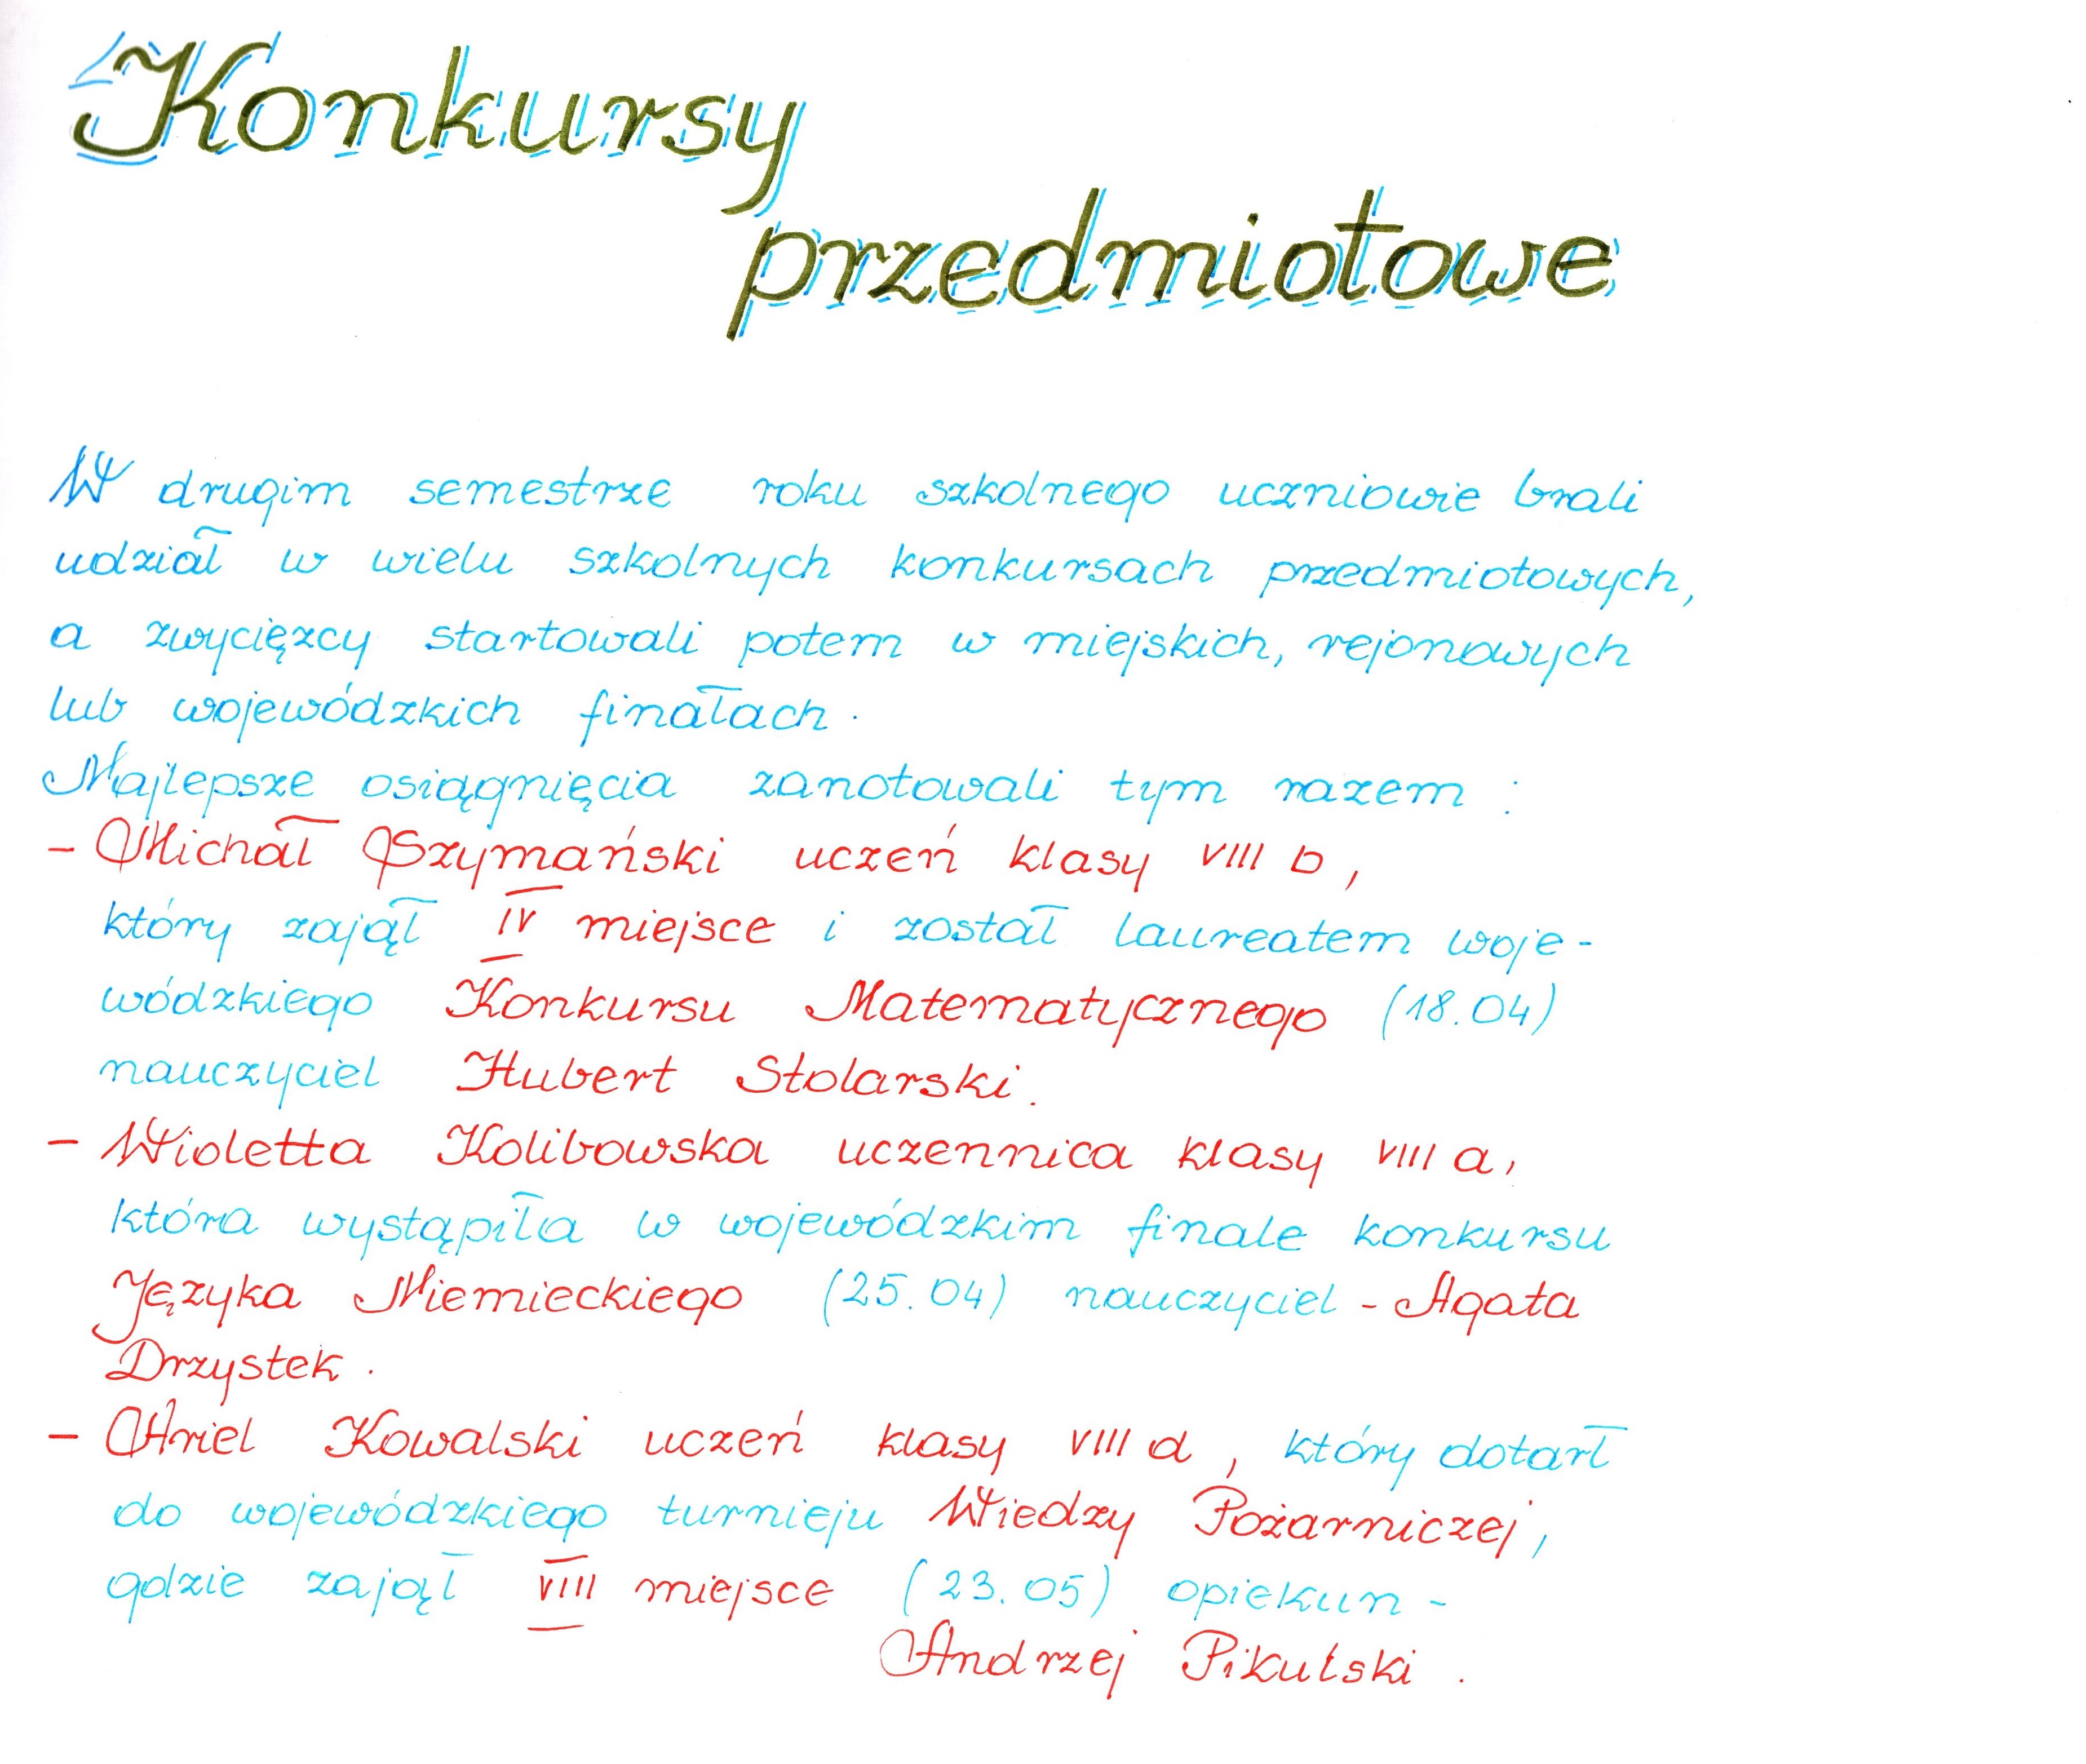 Konkursy
przedmiotowe
W drugim semestrze roku szkolnego uczniowie brali
udział w wielu szkolnych konkursach przedmiotowych,
a zwycięzcy startowali potem w miejskich, rejonowych
lub wojewódzkich finałach.
Najlepsze osiągnięcia zanotowali tym razem:
- Michał Szymański uczeń klasy VIII b,
który zajął IV miejsce i został laureatem woje-
wódzkiego Konkursu Matematycznego (18.04)
nauczyciel Hubert Stolarski.
- Wioletta Kolibowska uczennica klasy VIII a,
która wystąpiła w wojewódzkim finale konkursu
Języka Niemieckiego (25.04) nauczyciel - Agata
Drzystek.
- Ariel Kowalski uczeń klasy VIII d, który dotarł
do wojewódzkiego turnieju Wiedzy Pożarniczej,
gdzie zajął VIII miejsce (23.05) opiekun -
Andrzej Pikulski.